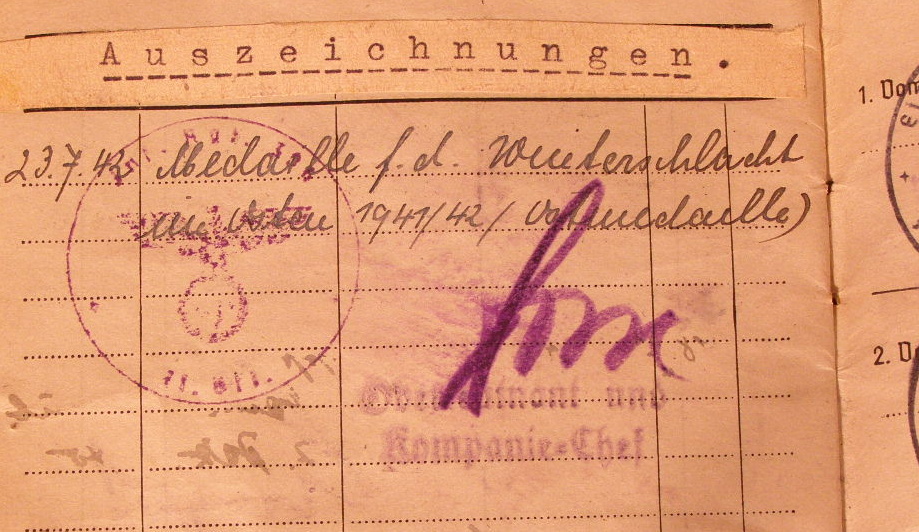 Auszeichnungen.
23.7.42 Medaille f. d. Winterschlacht
im Osten 1941/42 (Ostmedaille)
Oberleutnant und
Kompanie-Chef
1. Von
2. V